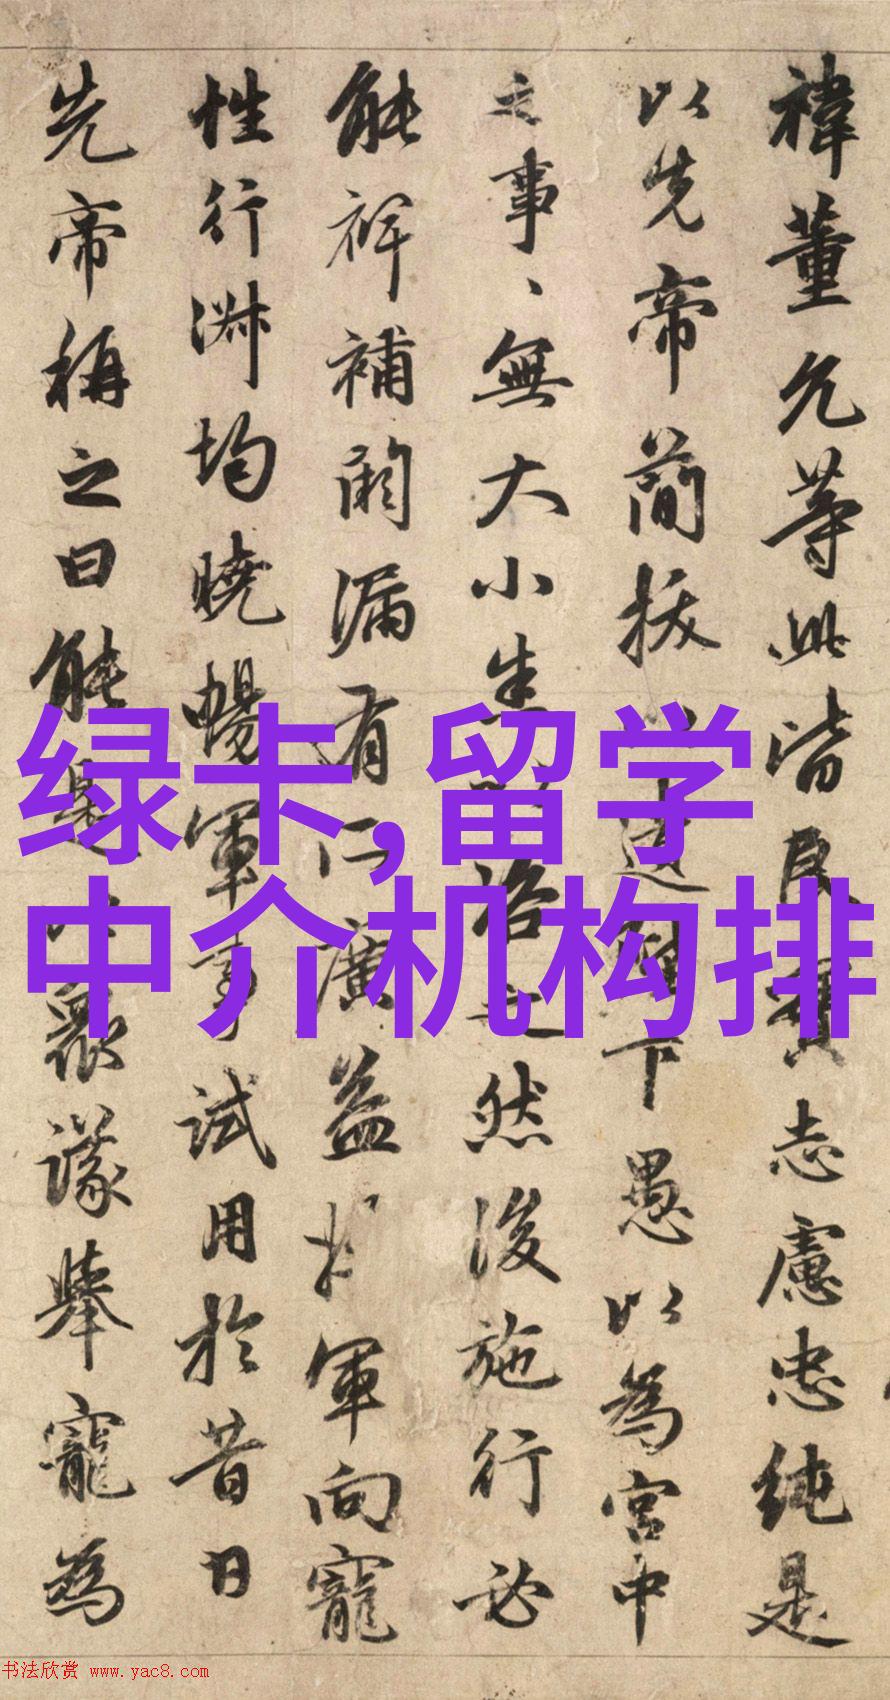 禕董允等此皆良實志慮忠純是
以先帝簡拔以遺陛下愚以為宮中
之事、無大小悉以咨之然後施行必
能裨補闕漏有所廣益將軍向寵
性行淑均曉暢軍事試用於昔日
先帝稱之曰能是以衆議舉寵為
绿卡,留学
中介机构排
书法欣赏 www.yac8.com